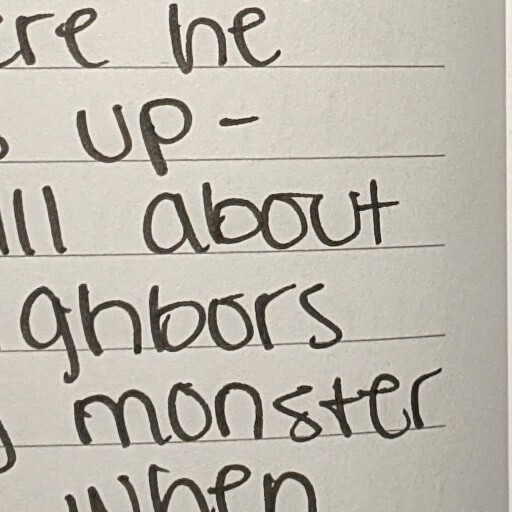 re he
up-
ll about
ghbors
monster
when